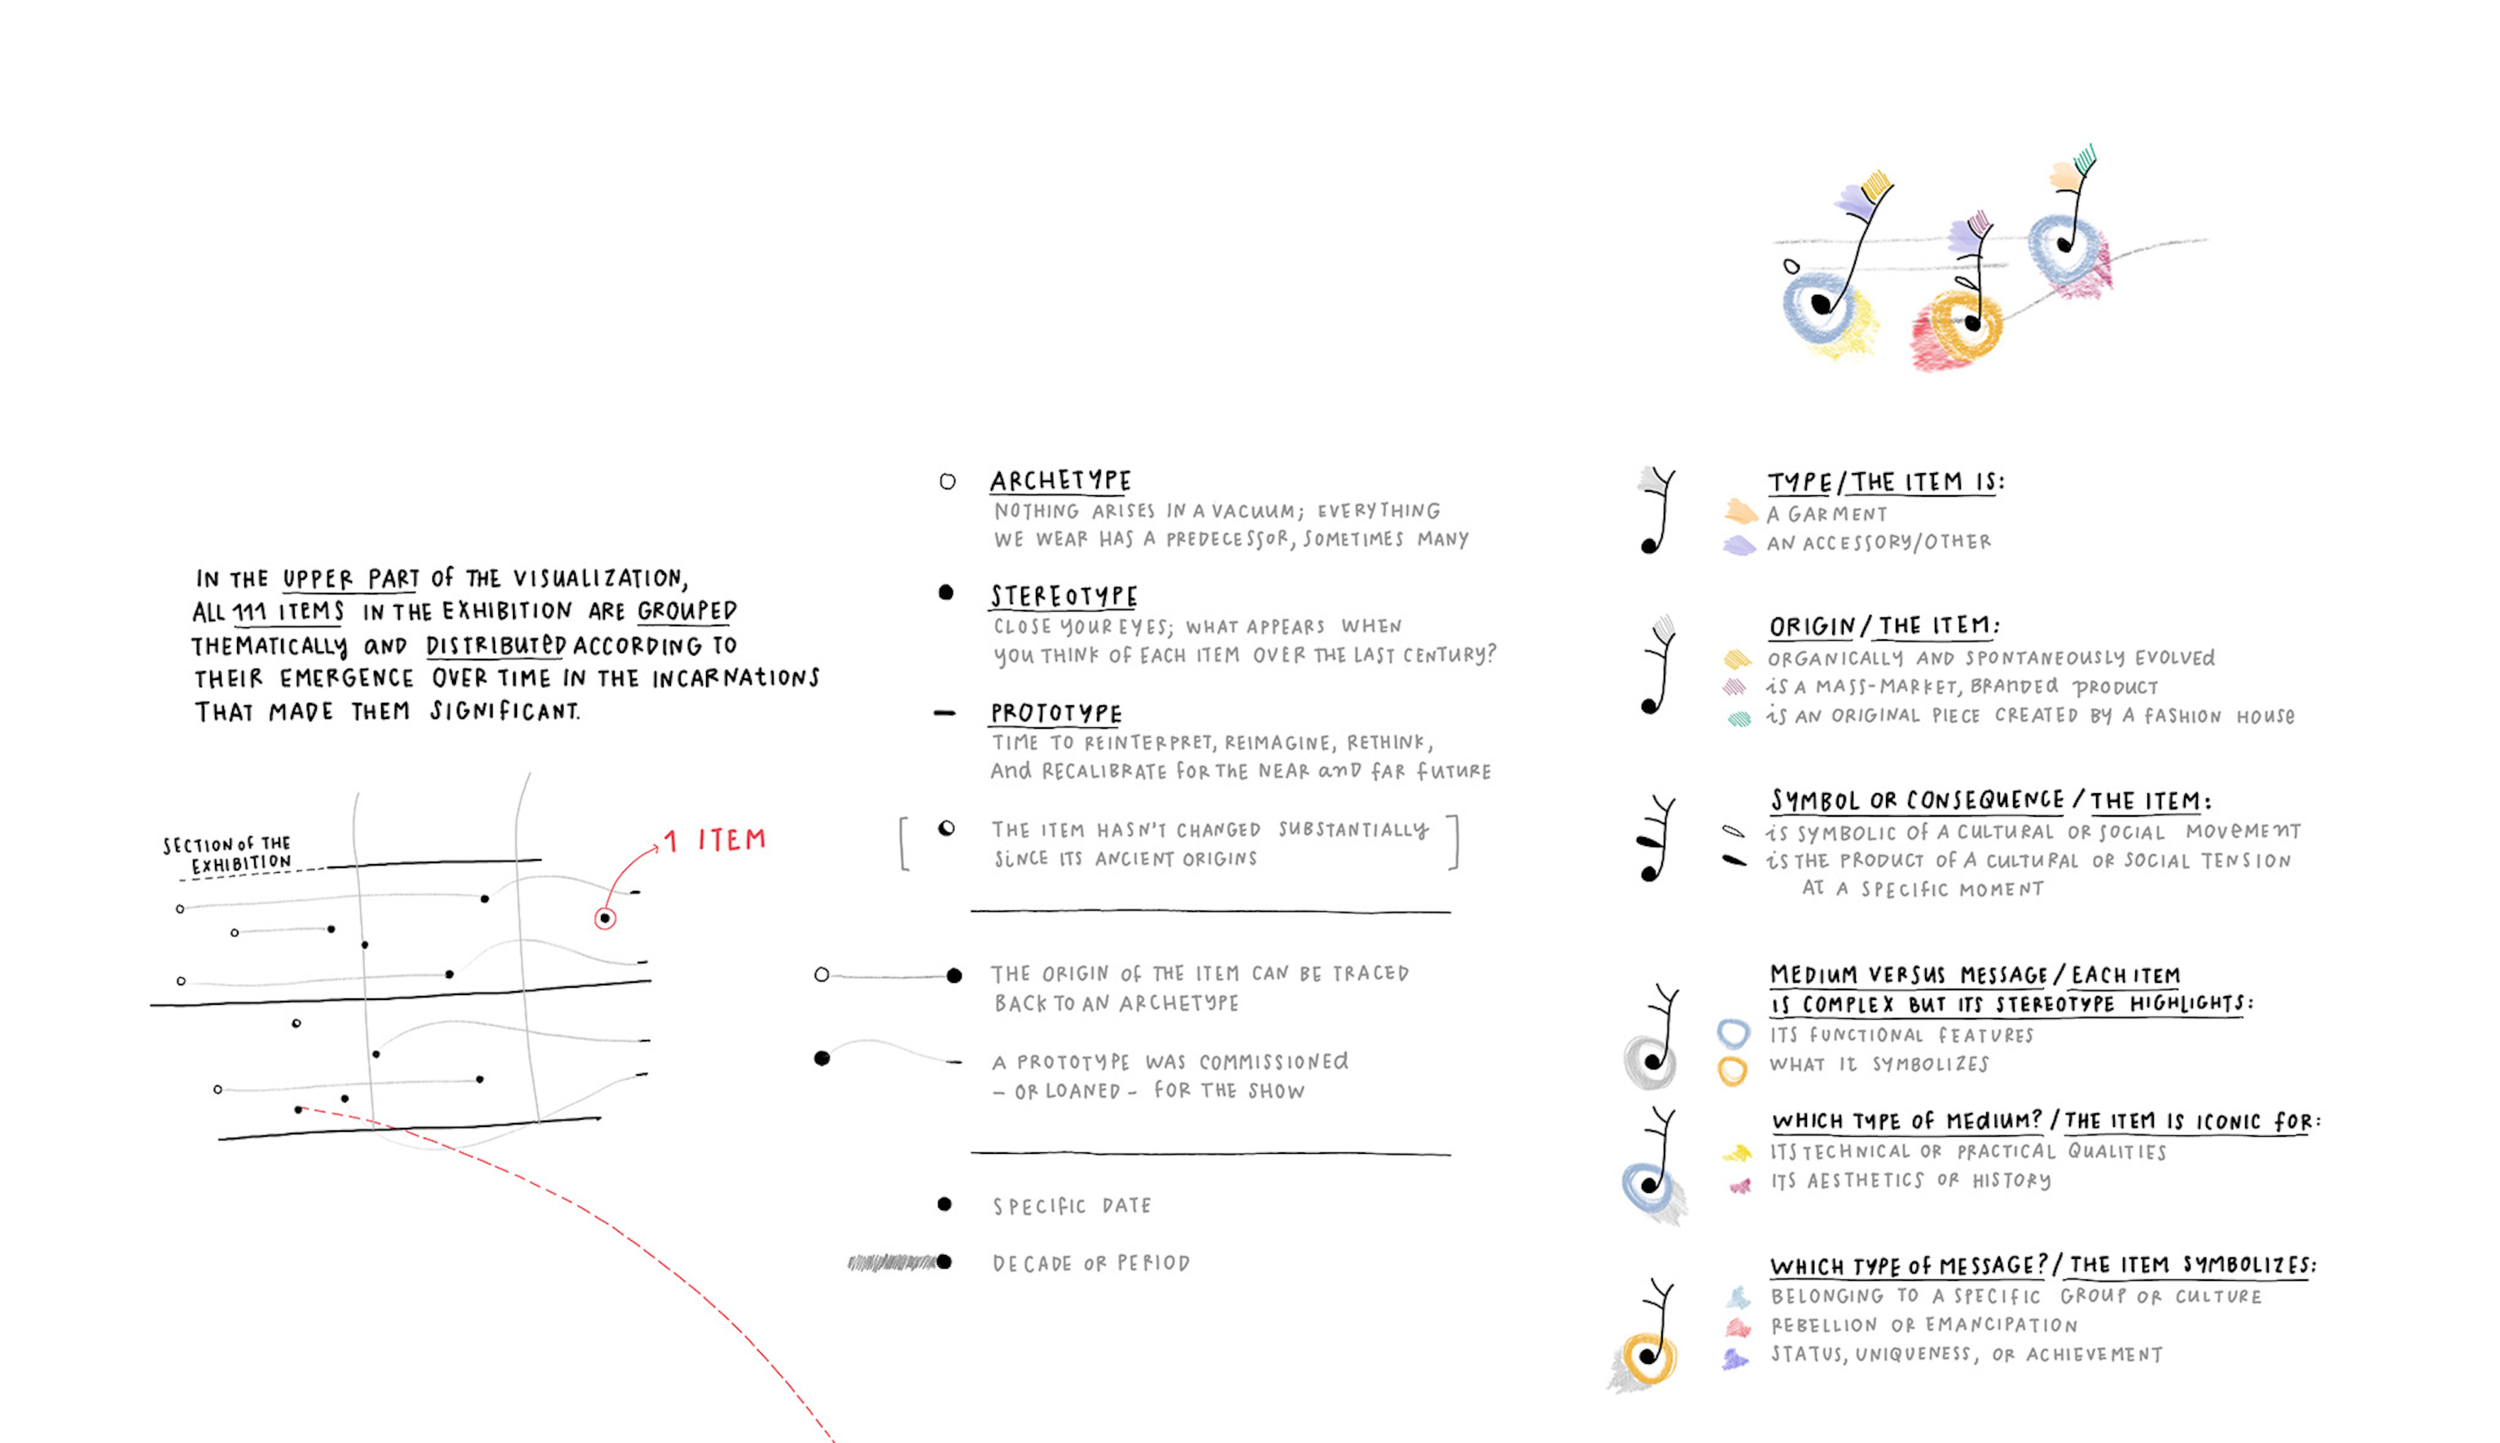 IN THE UPPER PART OF THE VISUALIZATION,
ALL 111 ITEMS IN THE EXHIBITION ARE GROUPED
THEMATICALLY AND DISTRIBUTED ACCORDING TO
THEIR EMERGENCE OVER TIME IN THE INCARNATIONS
THAT MADE THEM SIGNIFICANT.
SECTION OF THE
EXHIBITION
1 ITEM
ARCHETYPE
NOTHING ARISES IN A VACUUM; EVERYTHING
WE WEAR HAS A PREDECESSOR, SOMETIMES MANY
STEREOTYPE
CLOSE YOUR EYES; WHAT APPEARS WHEN
YOU THINK OF EACH ITEM OVER THE LAST CENTURY?
PROTOTYPE
TIME TO REINTERPRET, REIMAGINE, RETHINK,
AND RECALIBRATE FOR THE NEAR AND FAR FUTURE
[ THE ITEM HASN'T CHANGED SUBSTANTIALLY ]
SINCE ITS ANCIENT ORIGINS
THE ORIGIN OF THE ITEM CAN BE TRACED
BACK TO AN ARCHETYPE
A PROTOTYPE WAS COMMISSIONED
- OR LOANED - FOR THE SHOW
SPECIFIC DATE
DECADE OR PERIOD
TYPE/THE ITEM IS:
A GARMENT
AN ACCESSORY/OTHER
ORIGIN/THE ITEM:
ORGANICALLY AND SPONTANEOUSLY EVOLVED
IS A MASS-MARKET, BRANDED PRODUCT
IS AN ORIGINAL PIECE CREATED BY A FASHION HOUSE
SYMBOL OR CONSEQUENCE/THE ITEM:
IS SYMBOLIC OF A CULTURAL OR SOCIAL MOVEMENT
IS THE PRODUCT OF A CULTURAL OR SOCIAL TENSION
AT A SPECIFIC MOMENT
MEDIUM VERSUS MESSAGE/EACH ITEM
IS COMPLEX BUT ITS STEREOTYPE HIGHLIGHTS:
ITS FUNCTIONAL FEATURES
WHAT IT SYMBOLIZES
WHICH TYPE OF MEDIUM?/THE ITEM IS ICONIC FOR:
ITS TECHNICAL OR PRACTICAL QUALITIES
ITS AESTHETICS OR HISTORY
WHICH TYPE OF MESSAGE?/THE ITEM SYMBOLIZES:
BELONGING TO A SPECIFIC GROUP OR CULTURE
REBELLION OR EMANCIPATION
STATUS, UNIQUENESS, OR ACHIEVEMENT